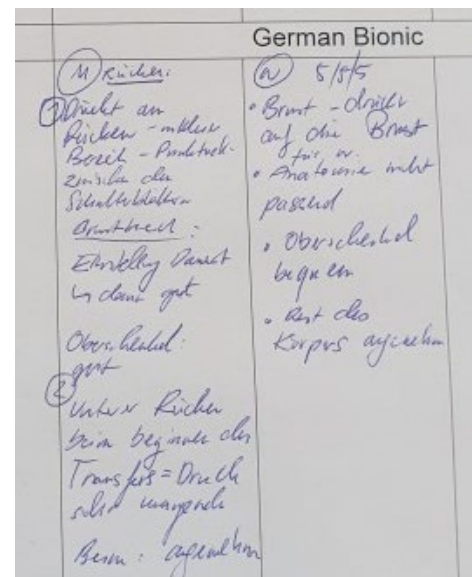 German Bionic
M Rücken:
1 Drückt am
Rücken - mittlerer
Bereich - Punktuell
zwischen den
Schulterblättern
Brustbereich:
Einstellung
gut
Oberschenkel:
gut
2
Unterer Rücken
beim beginnen des
Transfers = Druck
sehr
: angenehm
W 5/5/5
• Brust - drückt
auf die Brust
für w.
• Anatomie nicht
passend
• Oberschenkel
bequem
• Rest des
Korpus angenehm